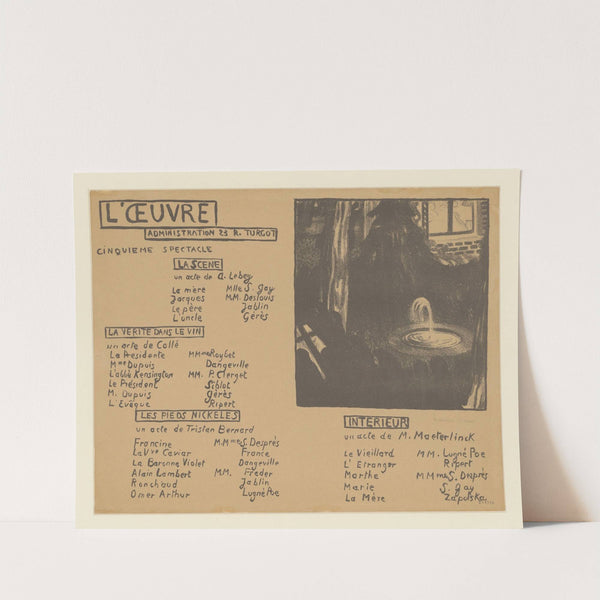 L'ŒUVRE
ADMINISTRATION 23 R. TURGOT
CINQUIEME SPECTACLE
LA SCENE
un acte de A. Lebey
La mère Mlle S. Gay
Jacques MM. Deslouis
Le père Jablin
L'oncle Gérès
LA VERITE DANS LE VIN
un acte de Collé
La Presidente MMmes Roybet
Mme Dupuis Dangeville
L'abbé Kensington MM. P. Clerget
Le Président Schlot
M. Dupuis Gérès
L'Evêque Ripert
LES PIEDS NICKELES
un acte de Tristan Bernard
Francine MMmes S. Desprès
La Vve Caviar France
La Baronne Violet Dangeville
Alain Lambert MM. Fréder
Ronchaud Jablin
Omer Arthur Lugné Poe
INTERIEUR
un acte de M. Maeterlinck
Le Vieillard MM. Lugné Poe
L'Etranger Ripert
Marthe MMmes S. Desprès
Marie S. Gay
La Mère Zapolska